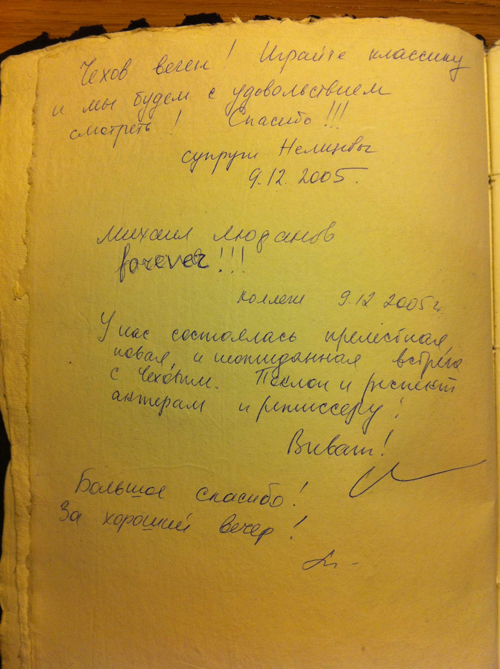 Чехов вечен! Играйте классику
и мы будем с удовольствием
смотреть! Спасибо!!!
супруги
9.12.2005.
Михаил Люданов
forever!!!
Коллеги 9.12 2005 г.
У нас состоялась прелестная,
новая, и неожиданная встреча
с Чеховым. Поклон и респект
актерам и режиссеру!
Виват!
Большое спасибо!
За хороший вечер!